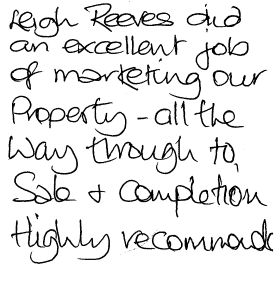 Leigh Reeves did
an excellent job
of marketing our
Property - all the
way through to,
Sale + Completion
Highly recommade